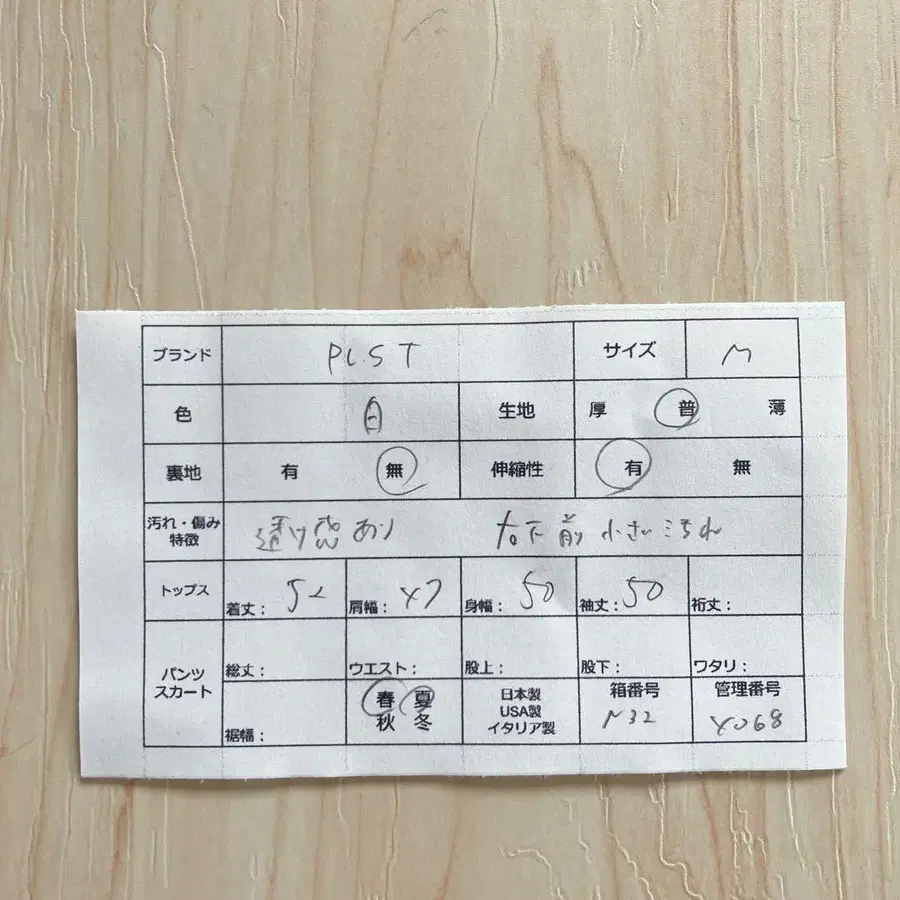 ブランド PLST サイズ M
色 白 生地 厚 普 薄
裏地 有 無 伸縮性 有 無
汚れ・傷み
特徴 透け感あり 右下前 小さい汚れ
トップス 着丈: 52 肩幅: 47 身幅: 50 袖丈: 50 裄丈:
パンツ
スカート 総丈: ウエスト: 股上: 股下: ワタリ:
裾幅: 春 夏
秋 冬 日本製
USA製
イタリア製 箱番号
N32 管理番号
4068